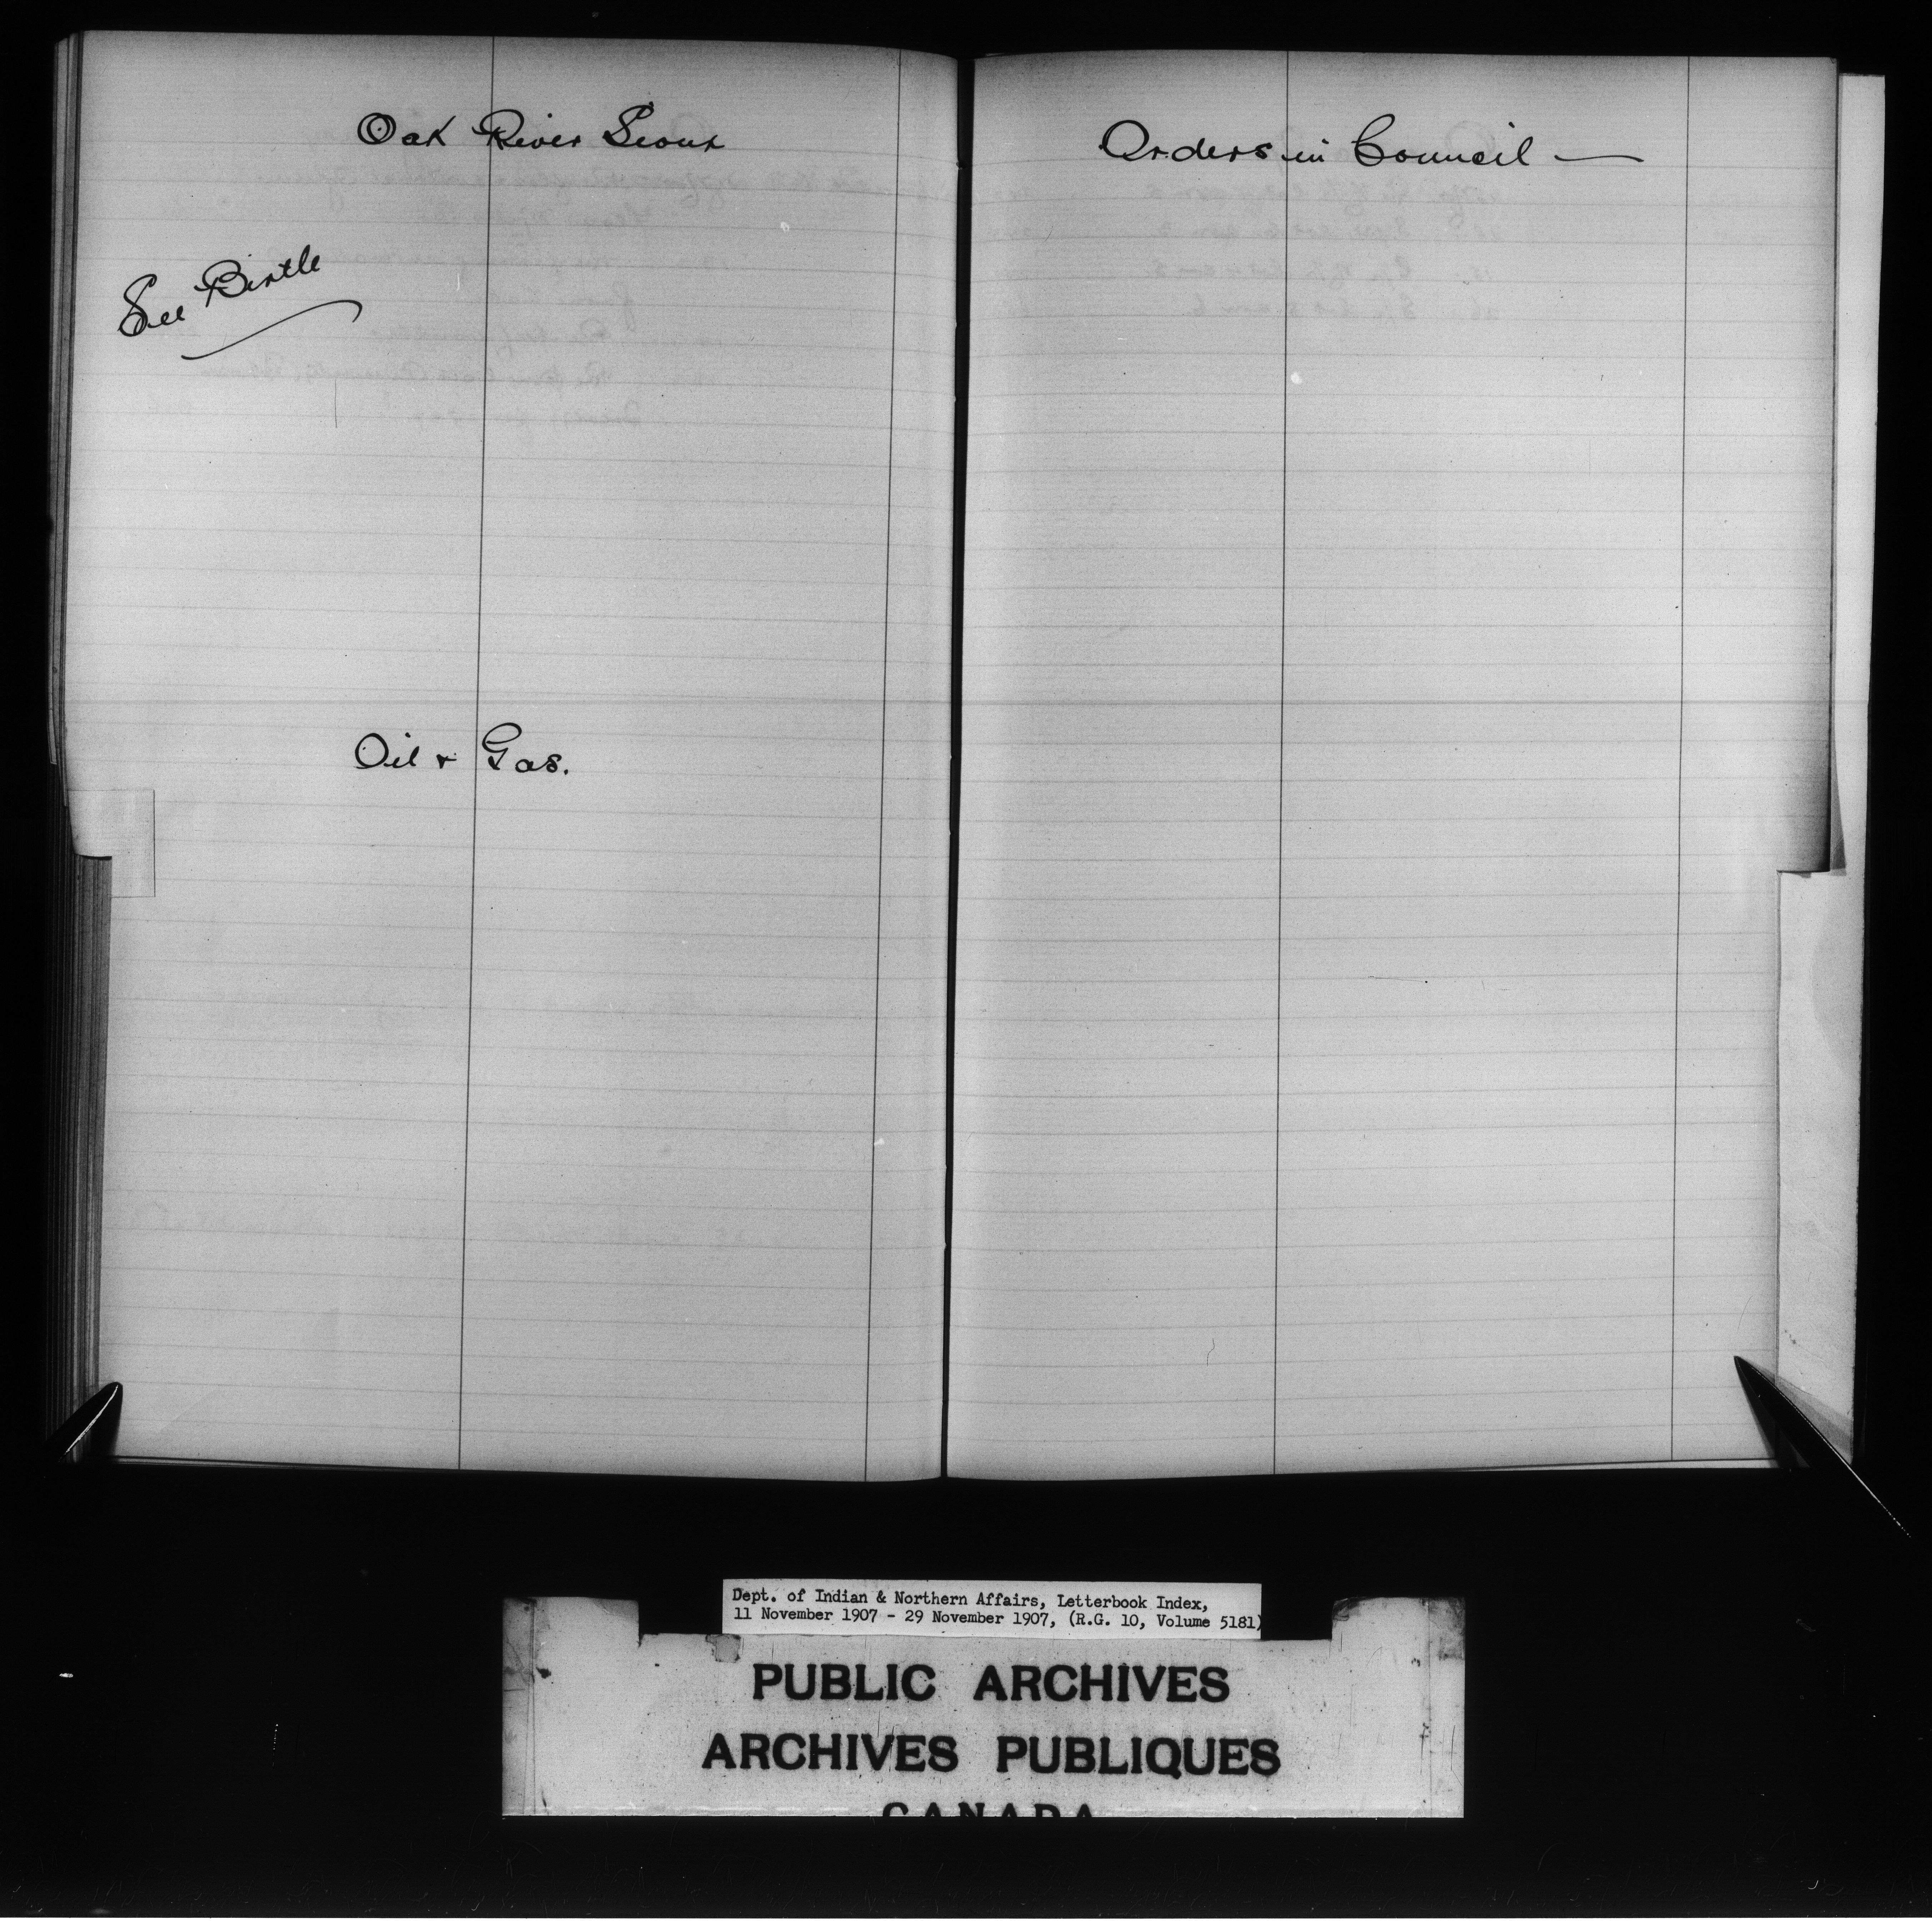 Oak River Sioux
See Birtle
Oil & Gas.
Orders in Council —
Dept. of Indian & Northern Affairs, Letterbook Index,
11 November 1907 - 29 November 1907, (R.G. 10, Volume 5181)
PUBLIC ARCHIVES
ARCHIVES PUBLIQUES
CANADA